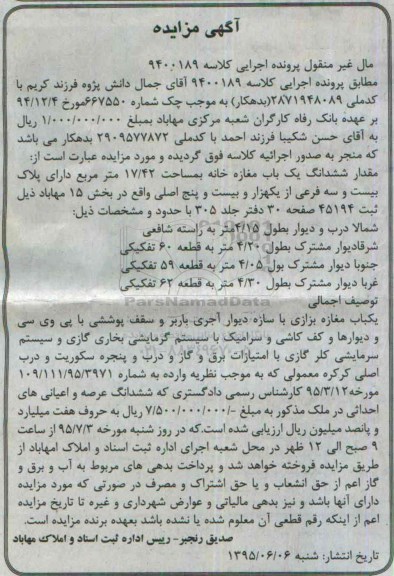 آگهی مزایده
مال غیر منقول پرونده اجرایی کلاسه ۹۴۰۰۱۸۹
مطابق پرونده اجرایی کلاسه ۹۴۰۰۱۸۹ آقای جمال دانش پژوه فرزند کریم با
کدملی ۲۸۷۱۹۴۸۰۸۹(بدهکار) به موجب چک شماره ۶۶۷۵۵۰مورخ ۹۴/۱۲/۴
بر عهده بانک رفاه کارگران شعبه مرکزی مهاباد بمبلغ ۱/۰۰۰/۰۰۰/۰۰۰ ریال
به آقای حسن شکیبا فرزند احمد با کدملی ۲۹۰۹۵۷۷۸۷۲ بدهکار می باشد
که منجر به صدور اجرائیه کلاسه فوق گردیده و مورد مزایده عبارت است از:
مقدار ششدانگ یک باب مغازه خانه بمساحت ۱۷/۴۲ متر مربع دارای پلاک
بیست و سه فرعی از یکهزار و بیست و پنج اصلی واقع در بخش ۱۵ مهاباد ذیل
ثبت ۴۵۱۹۴ صفحه ۳۰ دفتر جلد ۳۰۵ با حدود و مشخصات ذیل:
شمالا درب و دیوار بطول ۴/۱۵متر به راسته شافعی
شرقادیوار مشترک بطول ۴/۲۰ متر به قطعه ۶۰ تفکیکی
جنوبا دیوار مشترک بول ۴/۰۵ متر به قطعه ۵۹ تفکیکی
غربا دیوار مشترک بطول ۴/۳۰ متر به قطعه ۶۲ تفکیکی
توصیف اجمالی
یکباب مغازه بزازی با سازه دیوار آجری باربر و سقف پوششی با پی وی سی
و دیوارها و کف کاشی و سرامیک با سیستم گرمایشی بخاری گازی و سیستم
سرمایشی کلر گازی با امتیازات برق و گاز و درب و پنجره سکوریت و درب
اصلی کرکره معمولی که به موجب نظریه وارده به شماره ۱۰۹/۱۱۱/۹۵/۳۹۷۱
مورخه۹۵/۳/۱۲ کارشناس رسمی دادگستری که ششدانگ عرصه و اعیانی های
احداثی در ملک مذکور به مبلغ -/۷/۵۰۰/۰۰۰/۰۰۰ ریال به حروف هفت میلیارد
و پانصد میلیون ریال ارزیابی شده است.که در روز شنبه مورخه ۹۵/۷/۳ از ساعت
۹ صبح الی ۱۲ ظهر در محل شعبه اجرای اداره ثبت اسناد و املاک امهاباد از
طریق مزایده فروخته خواهد شد و پرداخت بدهی های مربوط به آب و برق و
گاز اعم از حق انشعاب و یا حق اشتراک و مصرف در صورتی که مورد مزایده
دارای آنها باشد و نیز بدهی مالیاتی و عوارض شهرداری و غیره تا تاریخ مزایده
اعم از اینکه رقم قطعی آن معلوم شده یا نشده باشد بعهده برنده مزایده است.
صدیق رنجبر- رییس اداره ثبت اسناد و املاک مهاباد
تاریخ انتشار: شنبه ۱۳۹۵/۰۶/۰۶
ParsNamadData